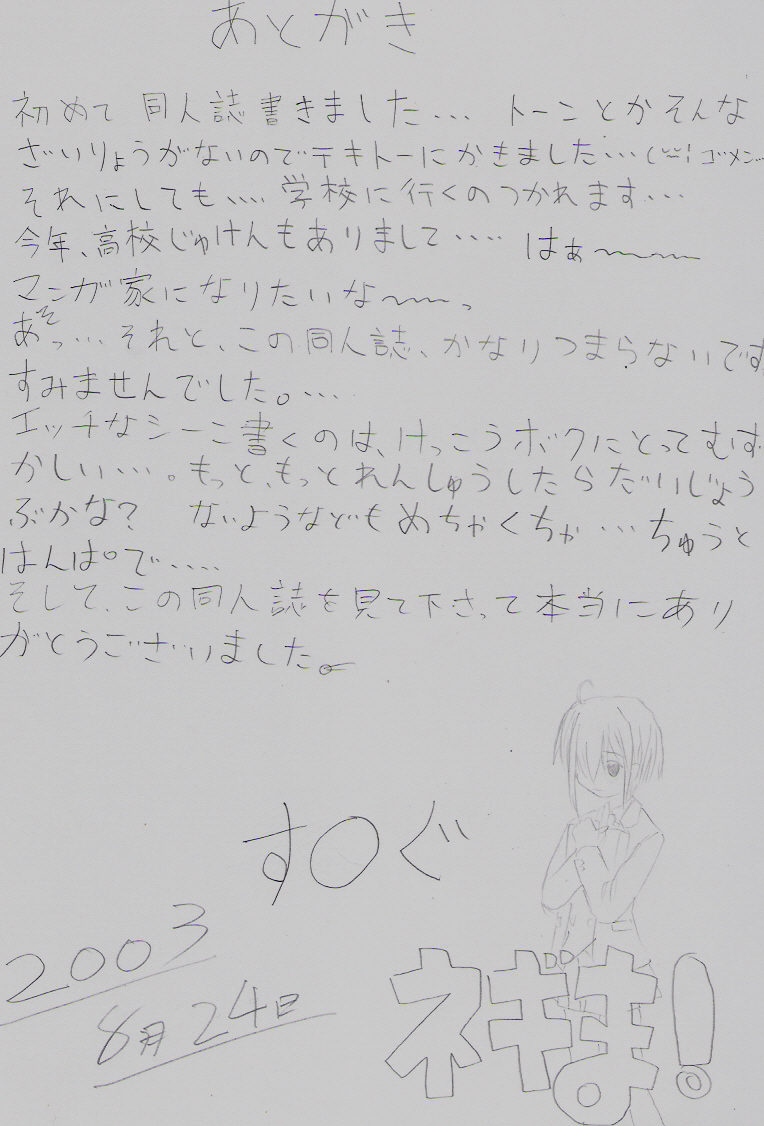 あとがき
初めて 同人誌書きました… トーンとかそんな
ざいりょうがないのでテキトーにかきました… ゴメン…
それにしても…… 学校に行くのつかれます…
今年、高校じゅけんもありまして…… はぁ〜〜〜
マンガ家になりたいな〜〜。
あっ… それと、この同人誌、かなりつまらないです
すみませんでした。…
エッチなシーン書くのは、けっこうボクにとってむず
かしい…。もっと、もっとれんしゅうしたらだいじょう
ぶかな? ないようなどもめちゃくちゃ… ちゅうと
はんぱで……
そして、この同人誌を見て下さって本当にあり
がとうございました。
す○ぐ
2003
8月24日
ネギま!